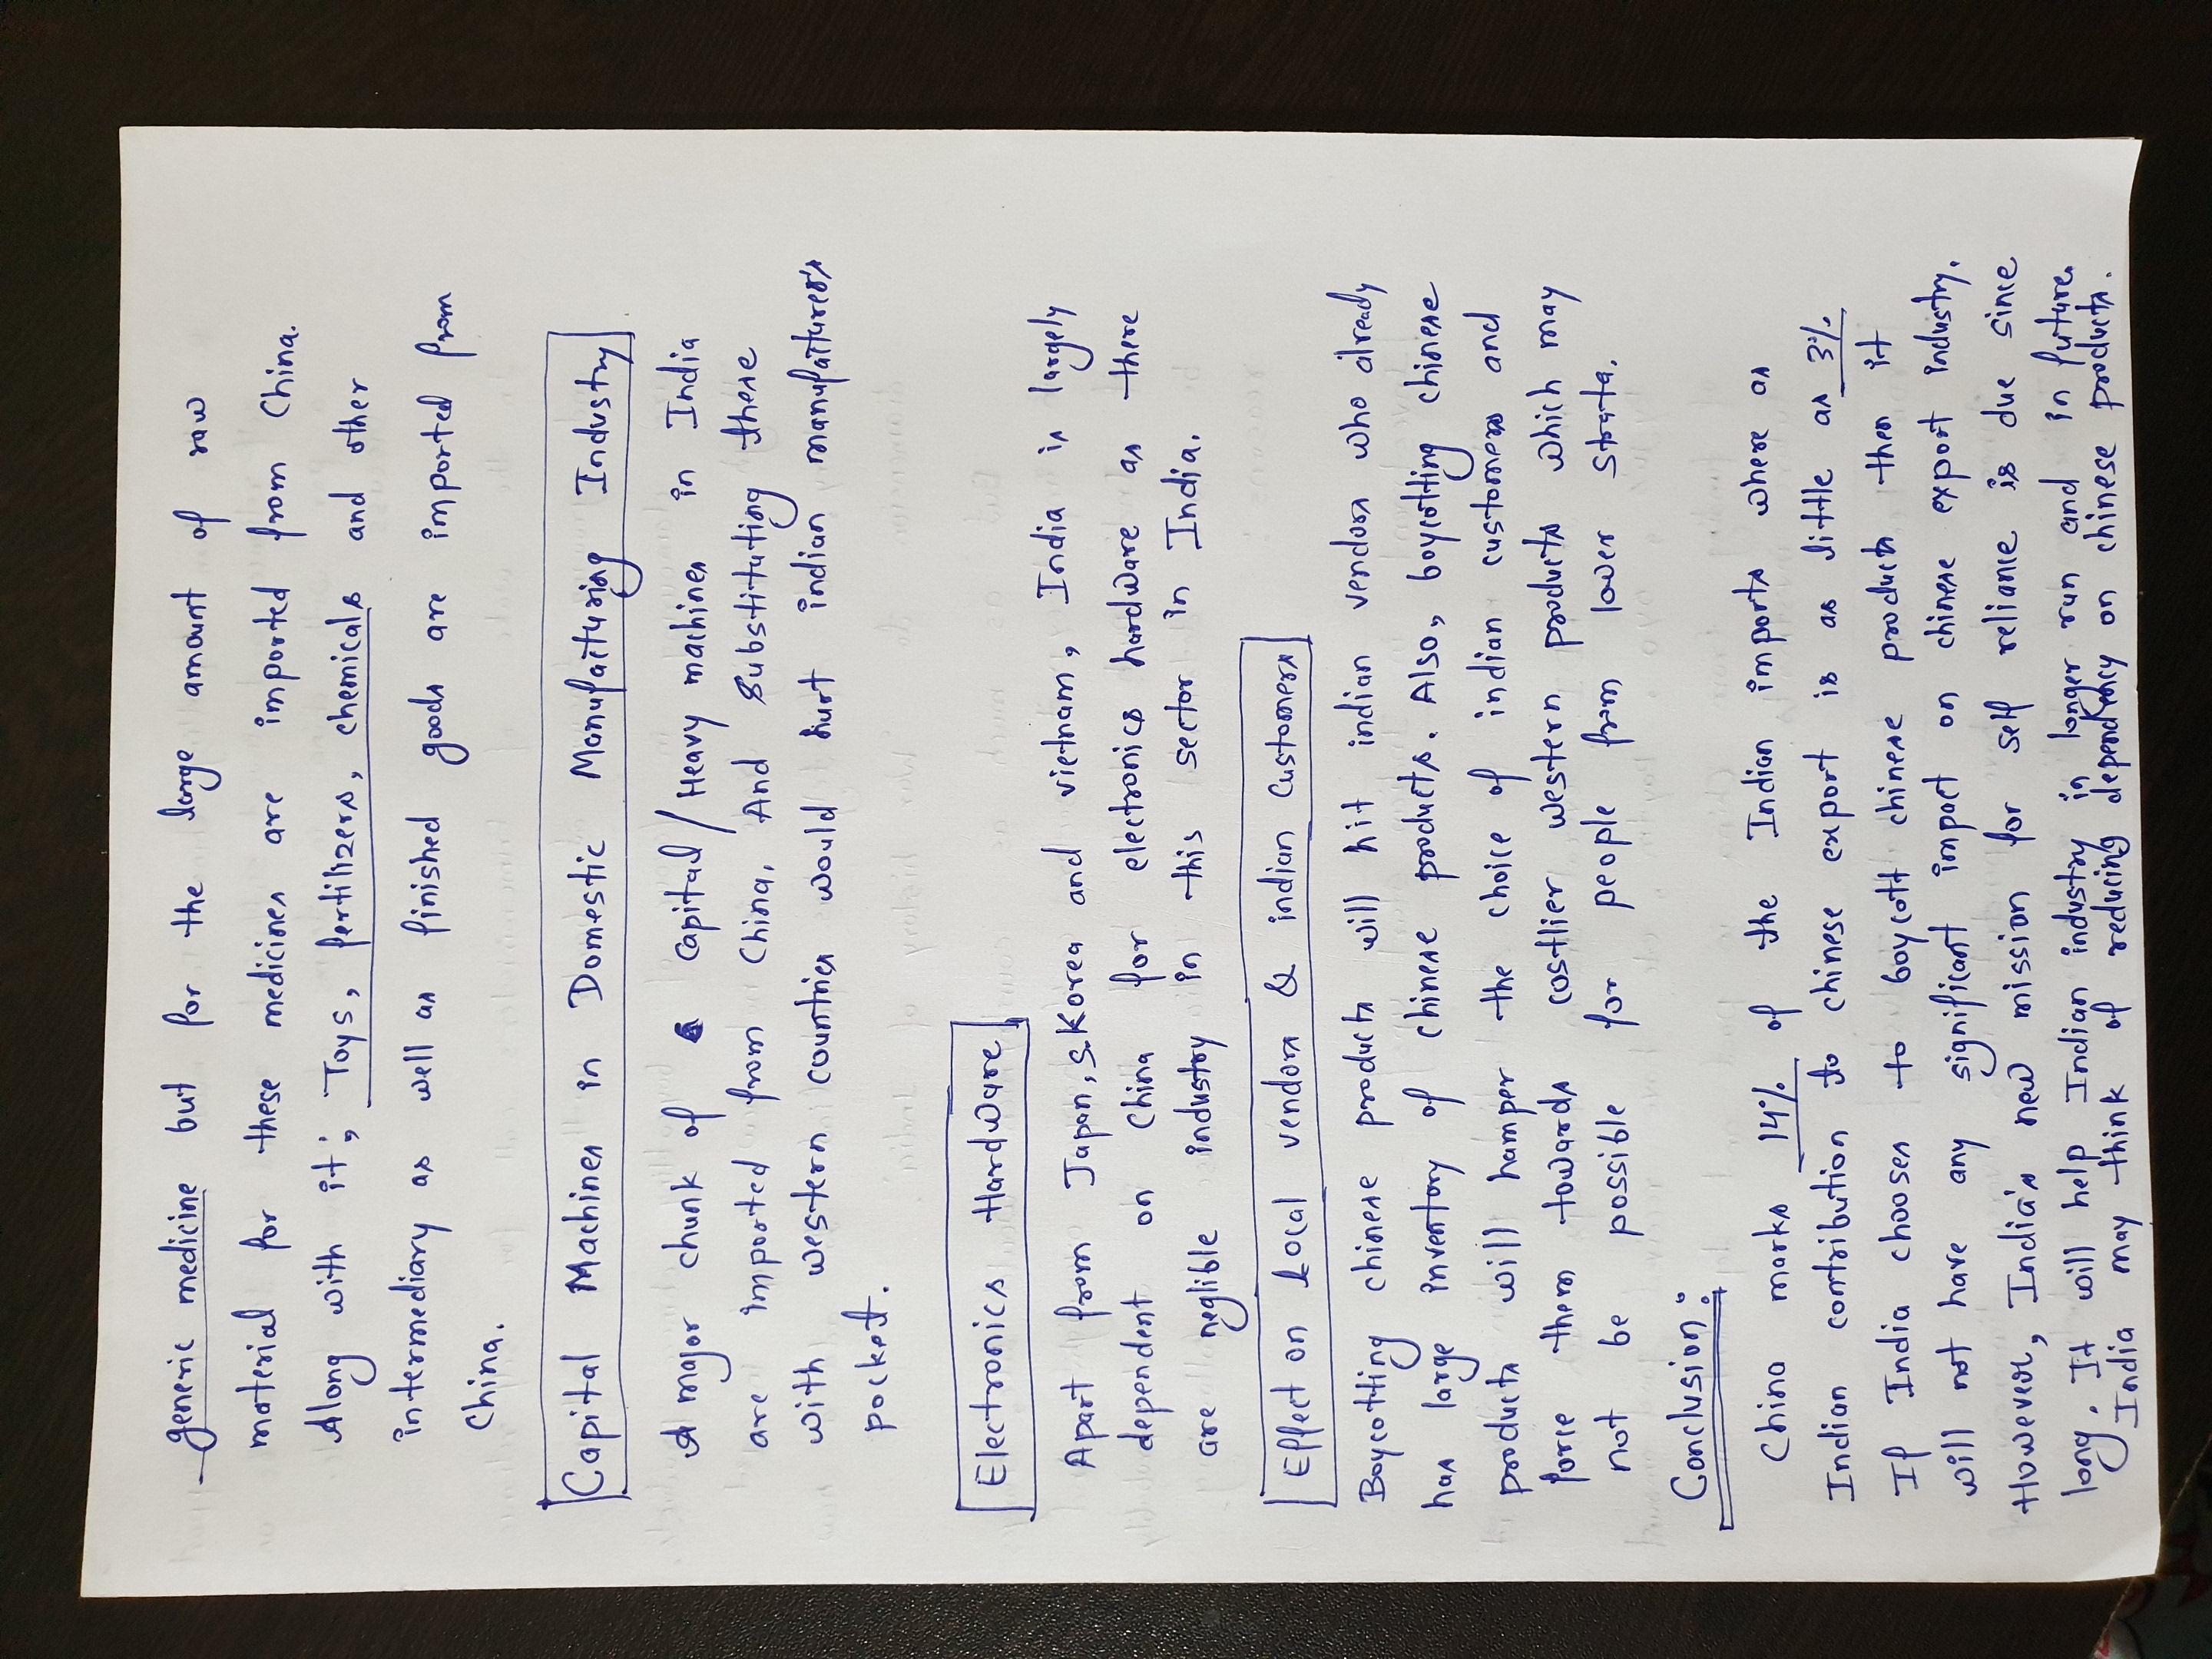 generic medicine but for the large amount of raw
material for these medicines are imported from China.
Along with it; Toys, fertilizers, chemicals and other
intermediary as well as finished goods are imported from
China.
Capital Machines in Domestic Manufacturing Industry
A major chunk of Capital / Heavy machines in India
are imported from China. And Substituting these
with western countries would hurt indian manufatureres
pocket.
Electronics Hardware
Apart from Japan, S.Korea and vietnam, India is largely
dependent on China for electronics hardware as there
are neglible industry in this sector in India.
Effect on Local vendors & indian Customers
Boycotting chinese products will hit indian vendors who already
has large inventory of chinese products. Also, boycotting chinese
products will hamper the choice of indian customers and
force them towards costlier western products which may
not be possible for people from lower strata.
Conclusion:
China marks 14% of the Indian imports where as
Indian contribution to chinese export is as little as 3%.
If India chooses to boycott chinese products then it
will not have any significant impact on chinese export industry.
However, India's new mission for self reliance is due since
long. It will help Indian industry in longer run and in future
India may think of reducing dependency on chinese products.